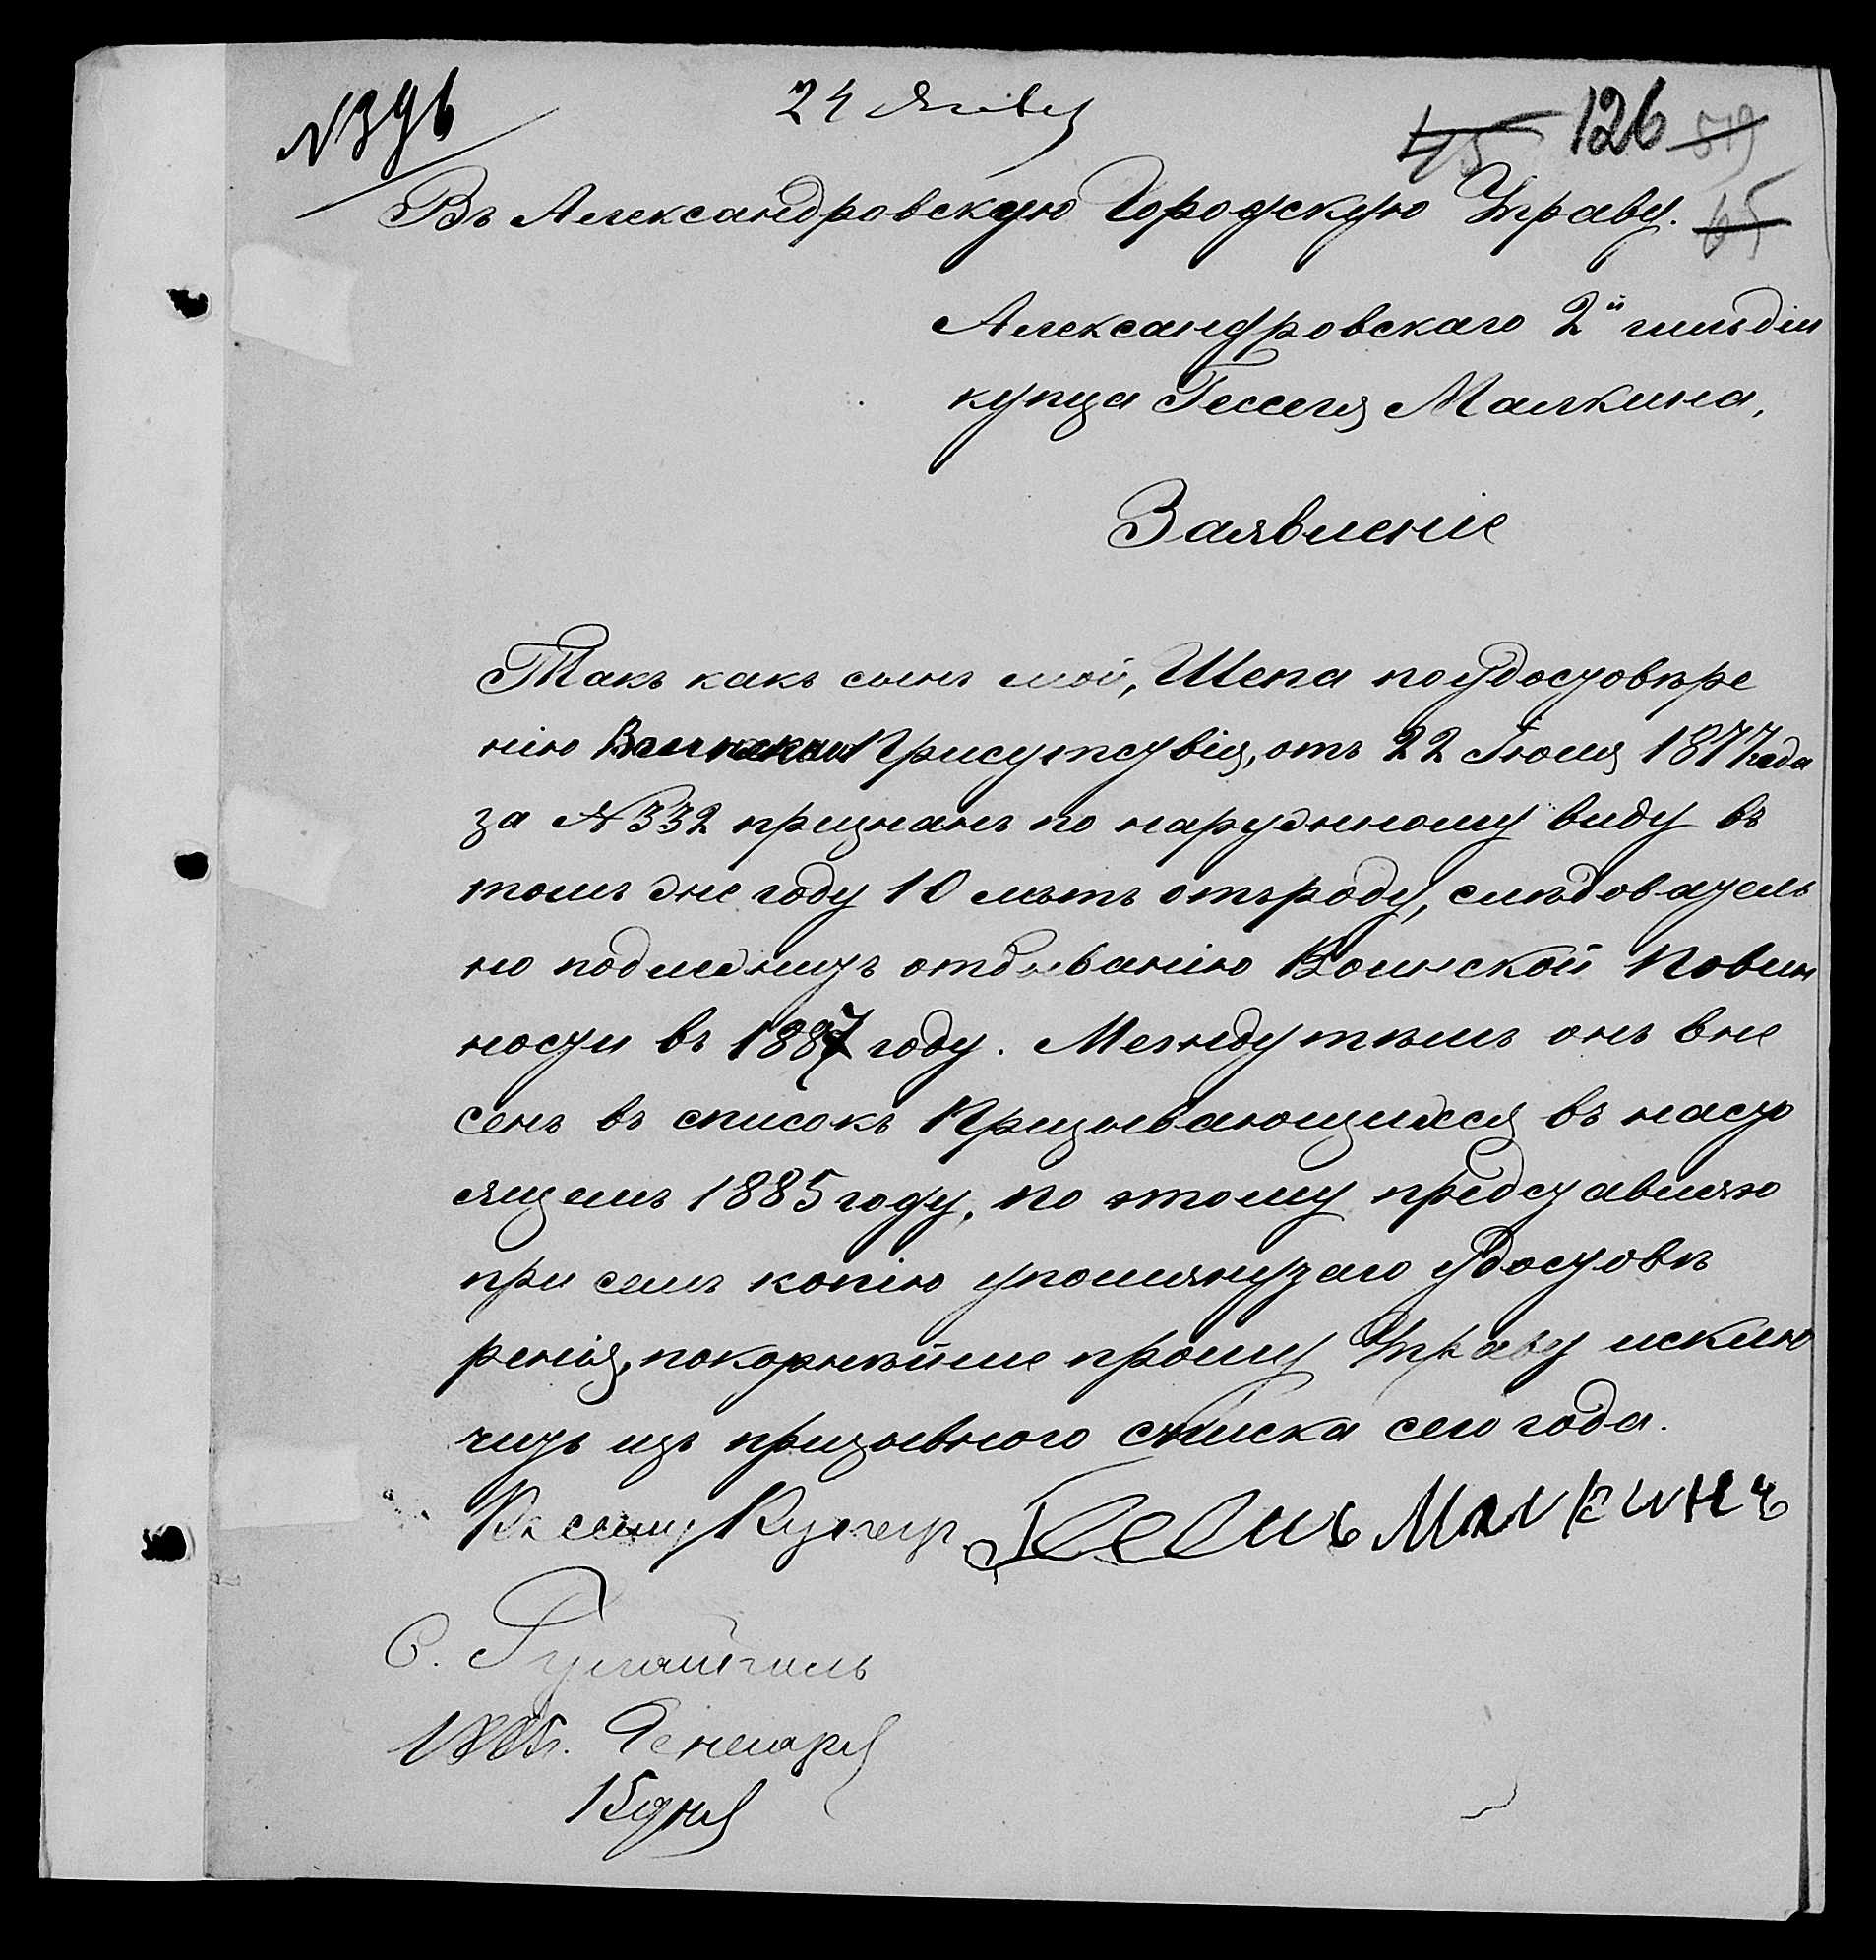 №396
24 Янв
45 126 519
Въ Александровскую Городскую Управу.
65
Александровскаго 2й гильдіи
купца Гесселя Малкина,
Заявленіе
Такъ какъ сынъ мой, Шепа по удостовѣре
нію Присутствія, отъ 22 Іюля 1877 года
за №332 признанъ по наружному виду въ
томъ же году 10 лѣтъ отъ роду, слѣдователь
но подлежитъ отбыванію Воинской Повин
ности въ 1887 году. Между тѣмъ онъ вне
сенъ въ списокъ Призывающихся въ насто
ящемъ 1885 году, по этому представляю
при семъ копію упомянутаго удостовѣ
ренія, покорнѣйше прошу Управу исклю
чить изъ призывного списка сего года.
Къ сему Купецъ Малкинъ
С. Гуляйполь
1885г. Генваря
15 дня